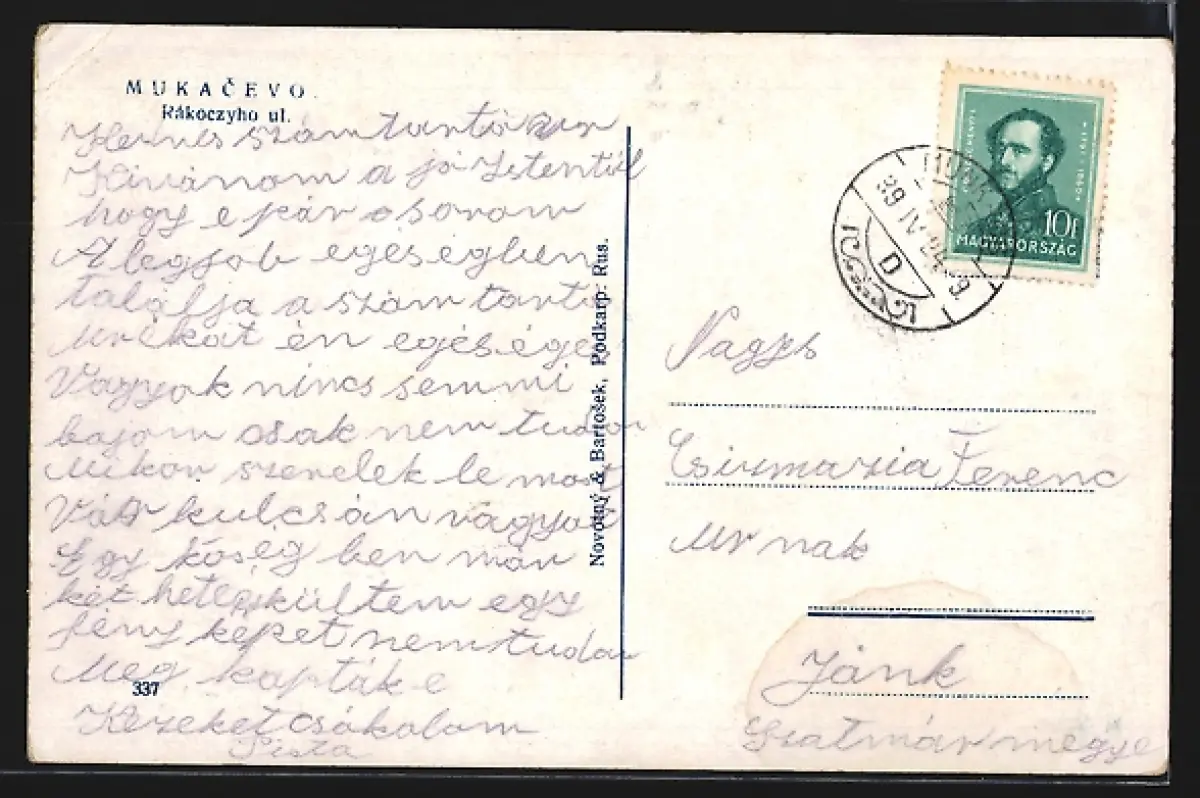 MUKAČEVO
Rákoczyho ul.
Kezves számtartó ur
Kivánom a jó Istentöl
hogy e pár osorom
A legjob egéségben
talalja a szám tartó
urékat én egéséges
Vagyok nincs semmi
bajom csak nem tudom
mikor szerelek le most
Vár kulcsán vagyok
Egy köség ben már
két hete kültem egy
fény képet nem tudom
meg kapták e
Kezeket csókolom
Pista
337
Novotný & Bartošek, Podkarp. Rus.
MUNK
39 IV. 24
D
10f
MAGYARORSZÁG
Nagys
Csizmazia Ferenc
urnak
Jánk
Szatmár megye